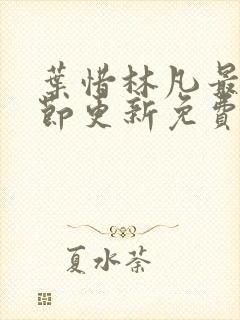 葉惜林凡最
節更新免費
夏水荼